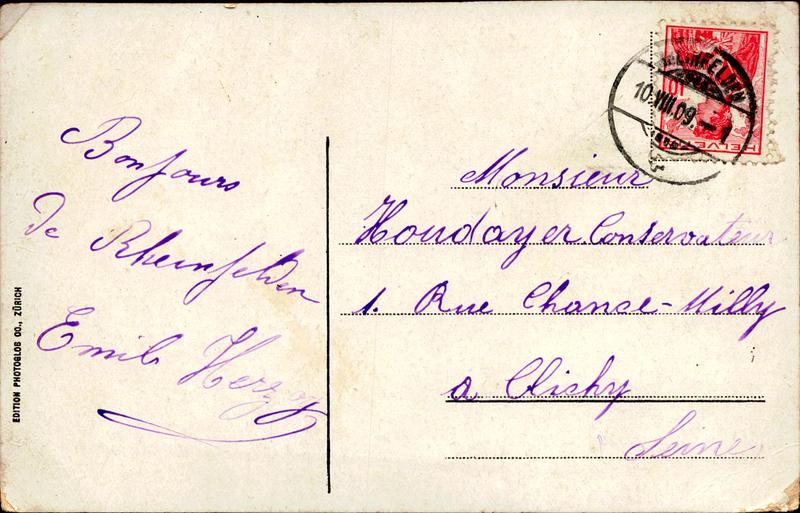 Bonjours
de Rheinfelden
Emil Herzog
EDITION PHOTOGLOB CO., ZÜRICH
RHEINFELDEN
10.VIII.09.
HELVETIA
10
Monsieur
Houdayer Conservateur
1. Rue Chance-Milly
a Clichy
Seine